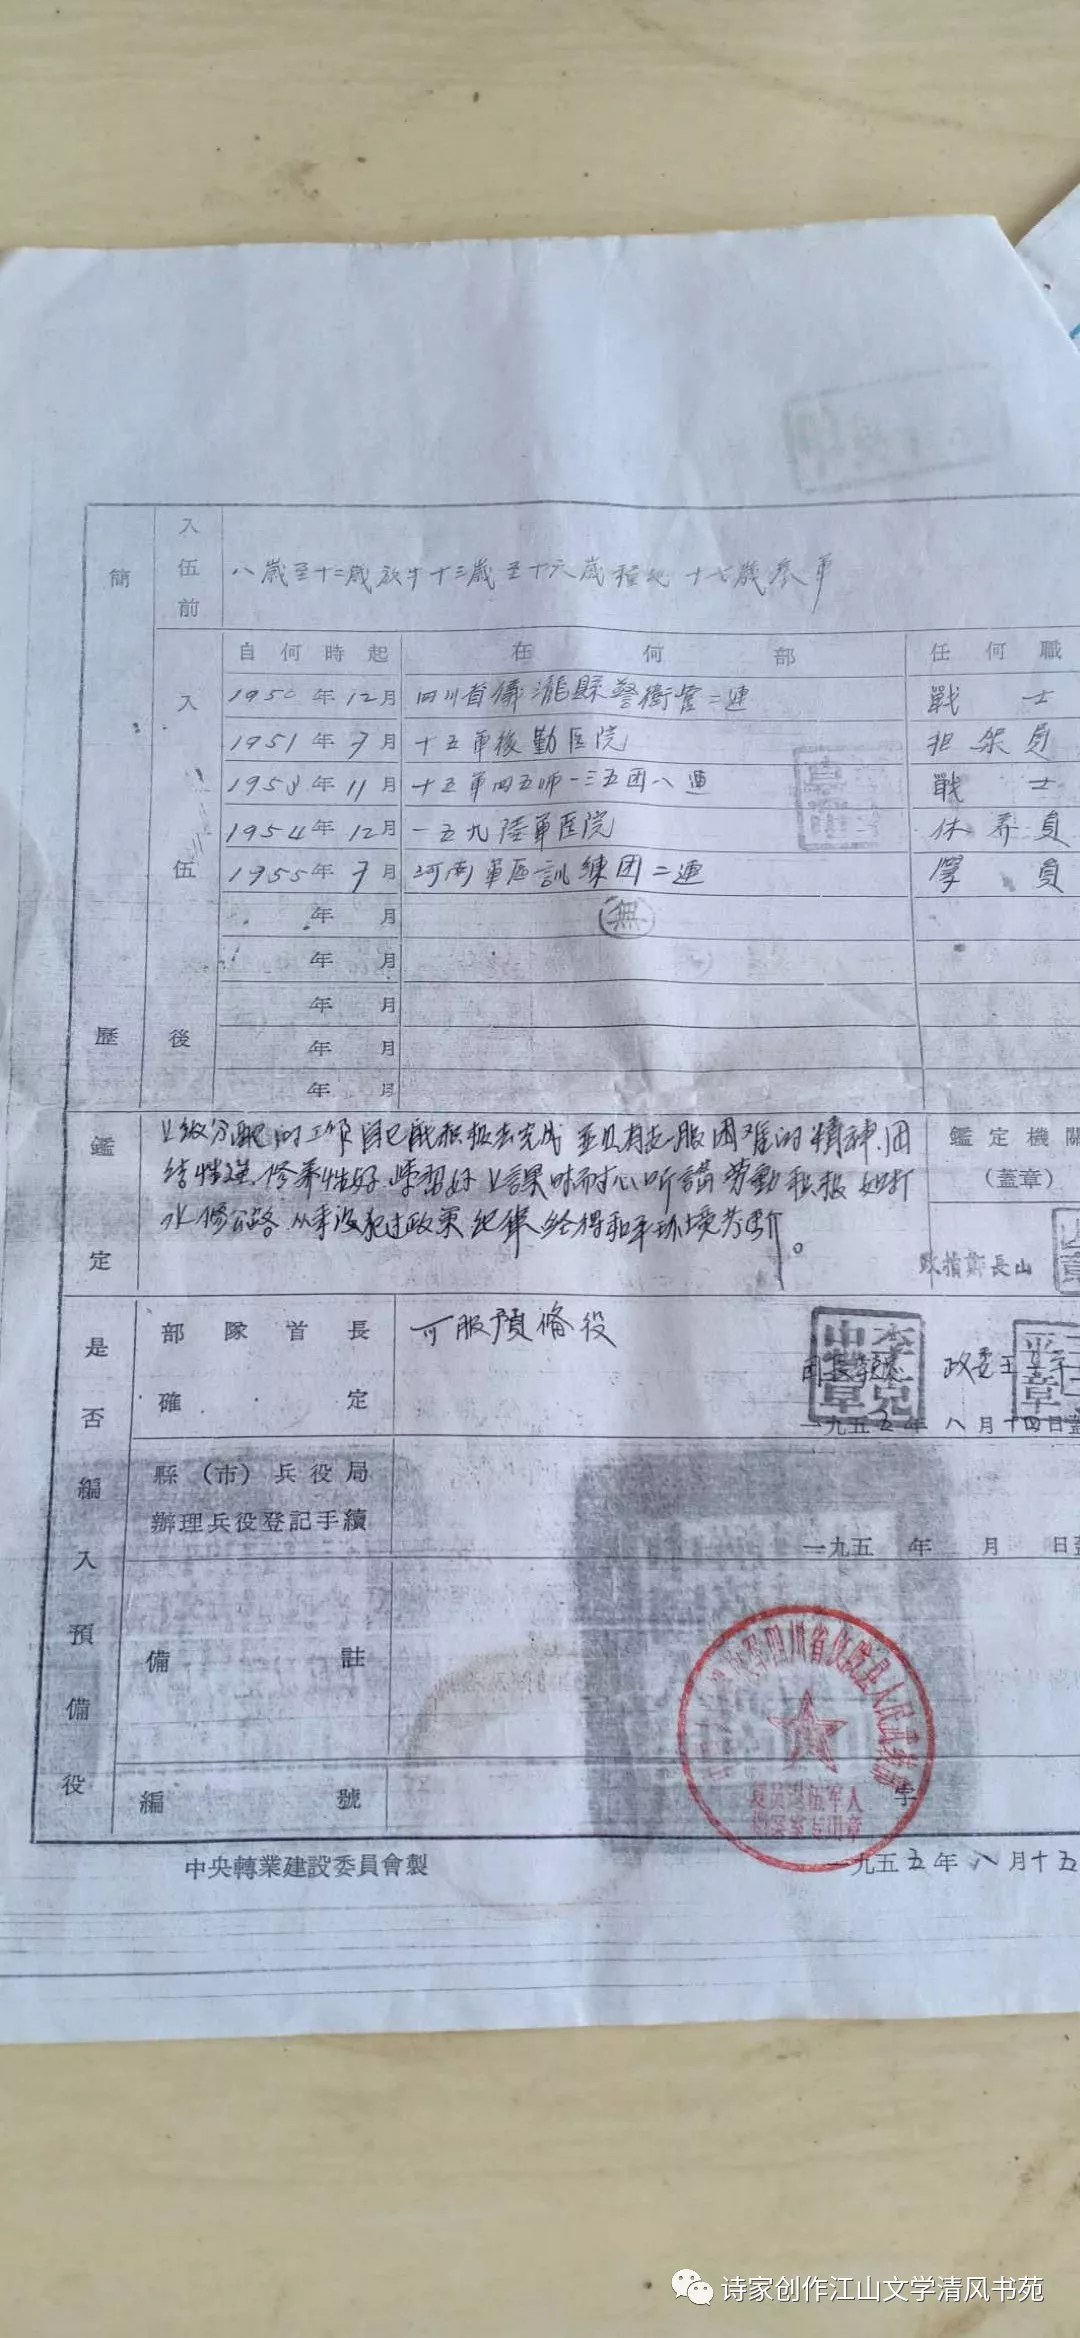 簡歷
入伍前
八歲至十二歲放牛十三歲至十六歲種地 十七歲參軍
入伍後
自何時起 在何部 任何職
1950年12月 四川省儀隴縣警衛營二連 戰士
1951年7月 十五軍後勤医院 担架員
1953年11月 十五軍四五师一三五团八連 戰士
1954年12月 一五九陸軍医院 休养員
1955年7月 河南軍區訓練团二連 學員
年 月 無
年 月
年 月
年 月
年 月
鑑定
上級分配的工作自己能积极去完成 並且有克服困难的精神.团
结性强.修养性好.学習好上課时耐心听講 劳動积极 如打
水修公路 从来没犯过政策纪律 经得和平环境考驗。
鑑定機關
(蓋章)
鄭長山
是否編入預備役
部隊首長
確定
可服預俻役
政委王
一九五五年八月十四日
縣(市)兵役局
辦理兵役登記手續
一九五 年 月 日
備註
四川省 县人民武装部
复员退伍军人
档案专用章
編號
字
中央轉業建設委員會製
一九五五年八月十五
诗家创作江山文学清风书苑